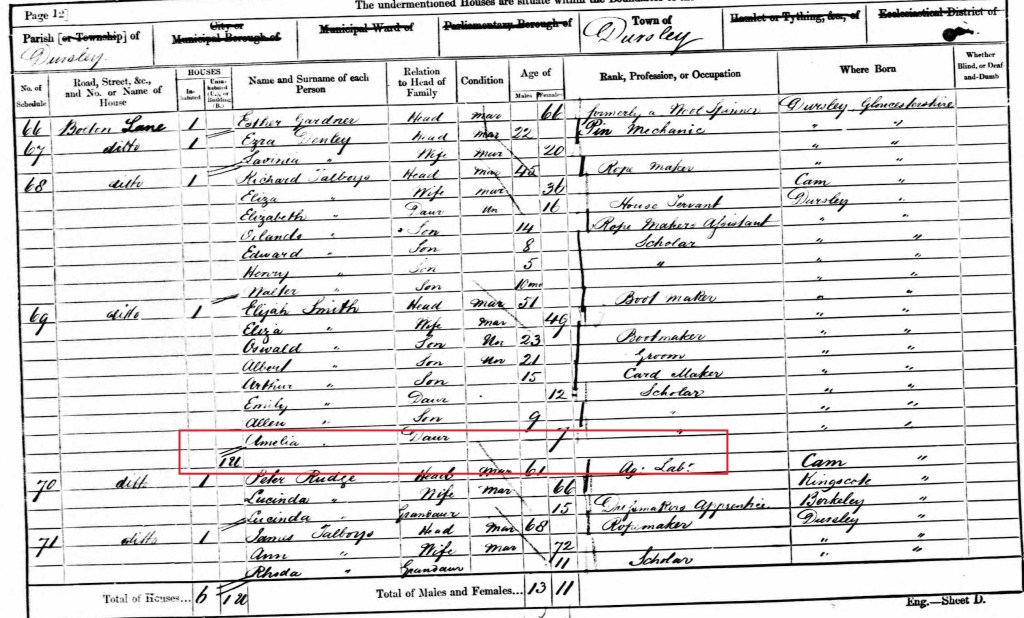 The undermentioned Houses are situate within the Boundaries of the
Page 12]
Parish [or Township] of
Dursley
City or Municipal Borough of
Municipal Ward of
Parliamentary Borough of
Town of
Dursley
Hamlet or Tything, &c., of
Ecclesiastical District of
No. of Schedule
Road, Street, &c., and No. or Name of House
HOUSES
In-habited
Unin-habited (U.), or Building (B.)
Name and Surname of each Person
Relation to Head of Family
Condition
Age of
Males
Females
Rank, Profession, or Occupation
Where Born
Whether Blind, or Deaf-and-Dumb
66 Lane 1 Esther Gardner Head Mar 66 formerly a Wool Spinner Dursley Gloucestershire
67 ditto 1 Ezra Head Mar 22 Pin Mechanic " "
Lavinia " Wife Mar 20 " "
68 ditto 1 Richard Talboys Head Mar 45 Rope Maker " "
Eliza " Wife Mar 36 Cam "
Elizabeth " Daur Un 16 House Servant Dursley "
Orlando " Son 14 Rope Makers Assistant " "
Edward " Son 8 Scholar " "
Henry " Son 5 " " "
Walter " Son 10 mo " "
69 ditto 1 Elijah Smith Head Mar 51 Boot maker " "
Eliza " Wife Mar 49 " "
Oswald " Son Un 23 Bootmaker " "
Albert " Son Un 21 Groom " "
Arthur " Son 15 Card Maker " "
Emily " Daur 12 Scholar " "
Allen " Son 9 " " "
Amelia " Daur 7 "
1 U
70 ditto 1 Peter Rudge Head Mar 61 Ag. Lab. Cam "
Lucinda " Wife Mar 66 Kingscote "
Lucinda " Grandaur 15 Dressmakers Apprentice Berkeley "
71 ditto 1 James Talboys Head Mar 68 Ropemaker Dursley "
Ann " Wife Mar 72 " "
Rhoda " Grandaur 11 Scholar " "
Total of Houses... 6 1 U Total of Males and Females... 13 11
Eng.—Sheet D.